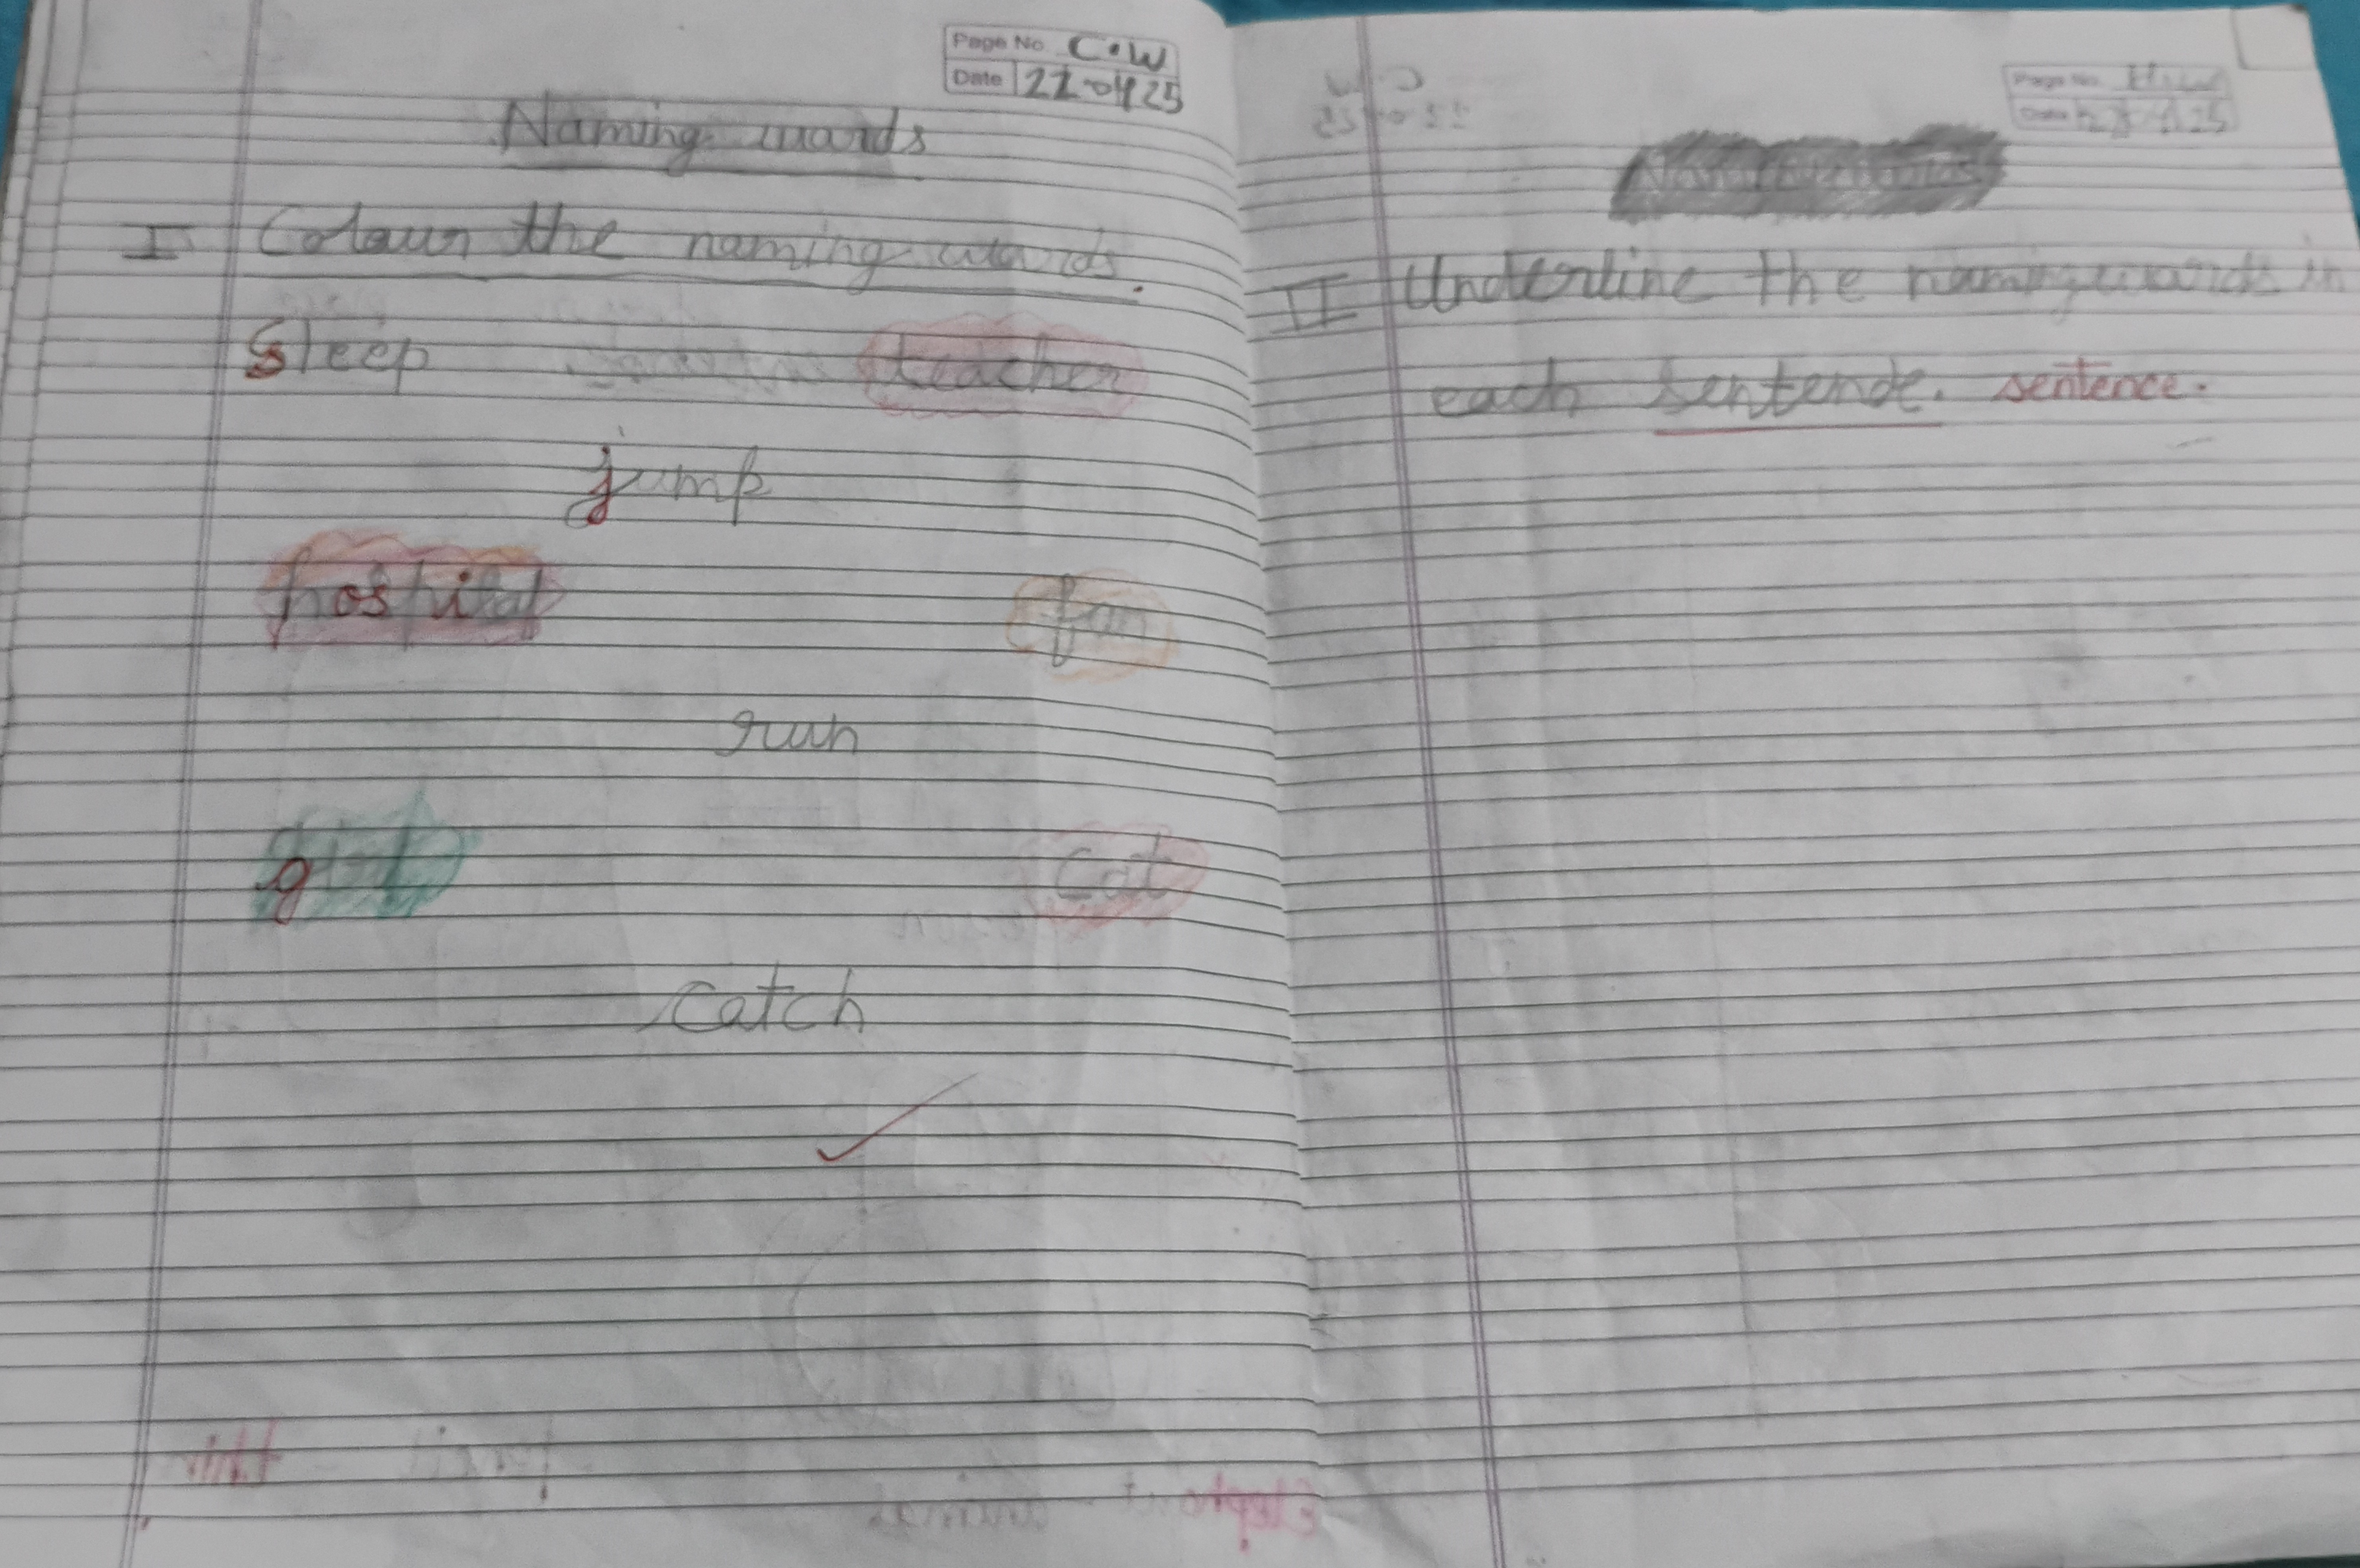 Page No. C.W
Date 22-04-25
Naming words
I Colour the naming words.
Sleep teacher
jump
hospital fan
run
cat
catch
Page No. H.W
Date
II Underline the naming words in
each sentence. sentence.